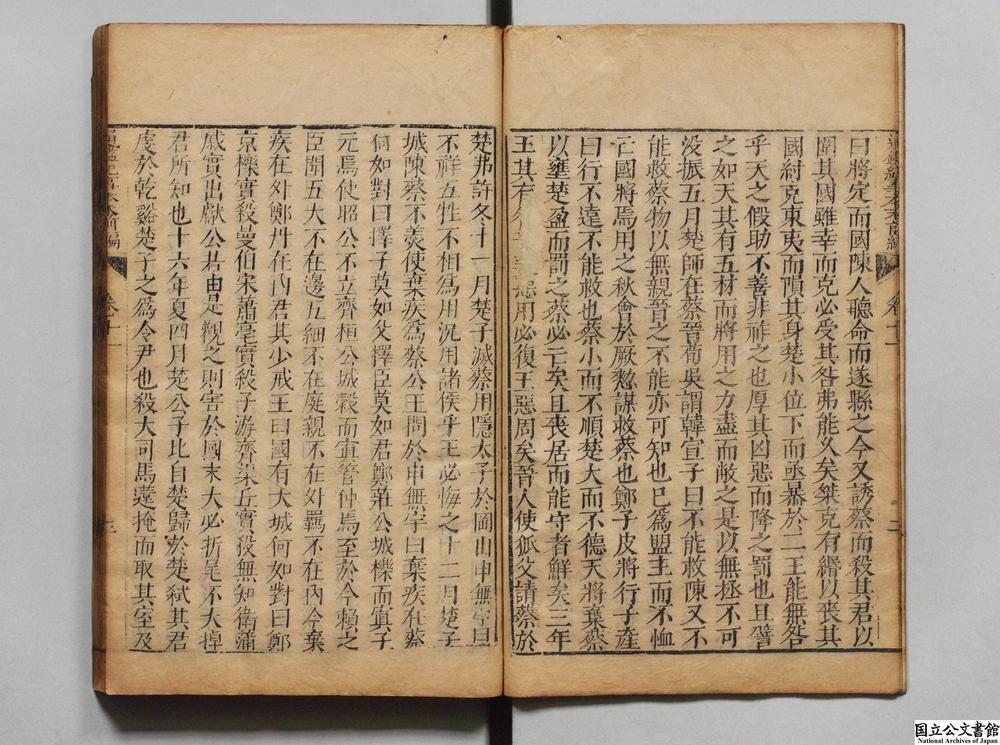 曰將定而國陳人聽命而遂縣之今又誘蔡而殺其君以
圍其國雖幸而克必受其咎弗能久矣桀克有緡以喪其
國紂克東夷而隕其身楚小位下而亟暴於二王能無咎
乎天之假助不善非祚之也厚其凶惡而降之罰也且譬
之如天其有五材而將用之力盡而敝之是以無拯不可
没振五月楚師在蔡晉荀吳謂韓宣子曰不能救陳又不
能救蔡物以無親晉之不能亦可知也已為盟主而不恤
亡國將焉用之秋會於厥憖謀救蔡也鄭子皮將行子產
曰行不遠不能救也蔡小而不順楚大而不德天將棄蔡
以壅楚盈而罰之蔡必亡矣且喪君而能守者鮮矣三年
王其有咎乎美惡周必復王惡周矣晉人使狐父請蔡於
楚弗許冬十一月楚子滅蔡用隱太子於岡山申無宇曰
不祥五牲不相為用況用諸侯乎王必悔之十二月楚子
城陳蔡不羹使棄疾為蔡公王問於申無宇曰棄疾在蔡
何如對曰擇子莫如父擇臣莫如君鄭莊公城櫟而寘子
元焉使昭公不立齊桓公城穀而寘管仲焉至於今賴之
臣聞五大不在邊五細不在庭親不在外羈不在內今棄
疾在外鄭丹在內君其少戒王曰國有大城何如對曰鄭
京櫟實殺曼伯宋蕭亳實殺子游齊渠丘實殺無知衛蒲
戚實出獻公若由是觀之則害於國末大必折尾不大掉
君所知也十六年夏四月楚公子比自楚歸於楚弒其君
虔於乾谿楚子之為令尹也殺大司馬薳掩而取其室及
卷十一
三
国立公文書館
National Archives of Japan